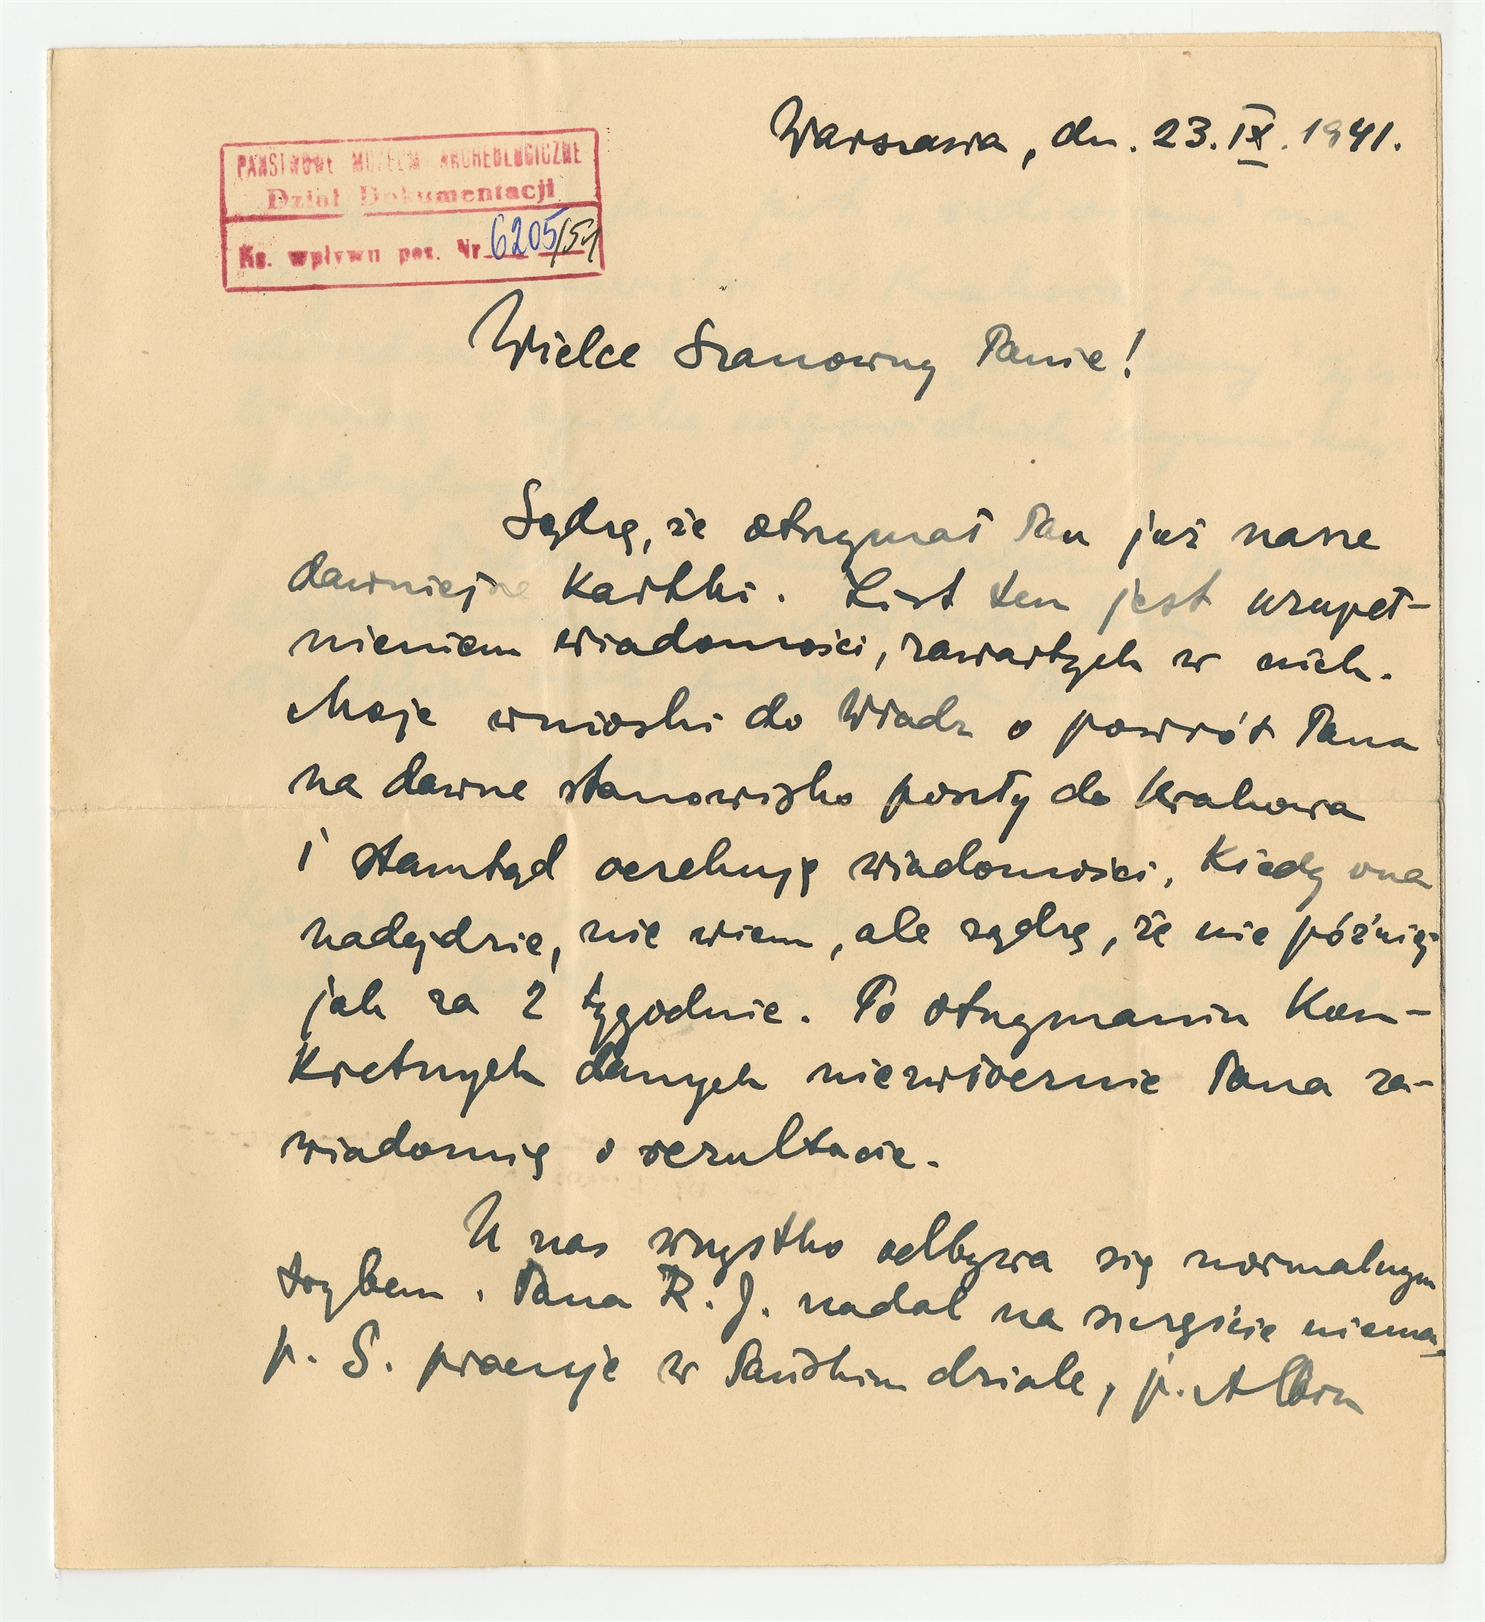 Warszawa, dn. 23.IX.1941.
PAŃSTWOWE MUZEUM ARCHEOLOGICZNE
Dział Dokumentacji
Ks. wpływu poz. Nr 6205/54
Wielce Szanowny Panie!
Sądzę, że otrzymał Pan już nasze
dawniejsze kartki. List ten jest uzupeł-
nieniem wiadomości, zawartych w nich.
Moje wnioski do Władz o powrót Pana
na dawne stanowisko poszły do Krakowa
i stamtąd oczekuję wiadomości. Kiedy ona
nadejdzie, nie wiem, ale sądzę, że nie później
jak za 2 tygodnie. Po otrzymaniu kon-
kretnych danych niezwłocznie Pana za-
wiadomię o rezultacie.
U nas wszystko odbywa się normalnym
trybem. Pana R. J. nadal na szczęście niema,
p. S. pracuje w Pańskim dziale, p. Albin